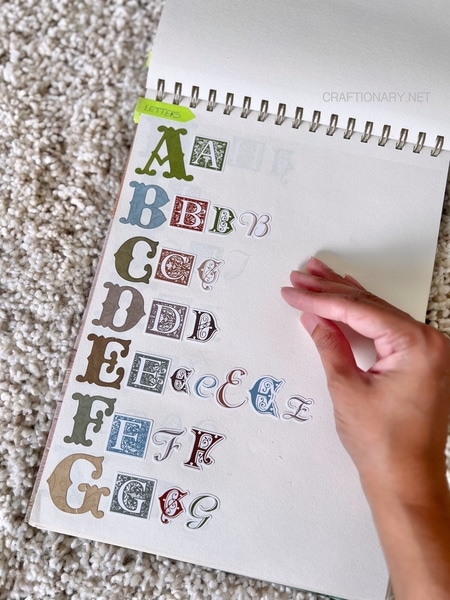 CRAFTIONARY.NET
LETTERS
A A
B B B B
C C C
D D D
E E E e E E E
F F F F
G G G G